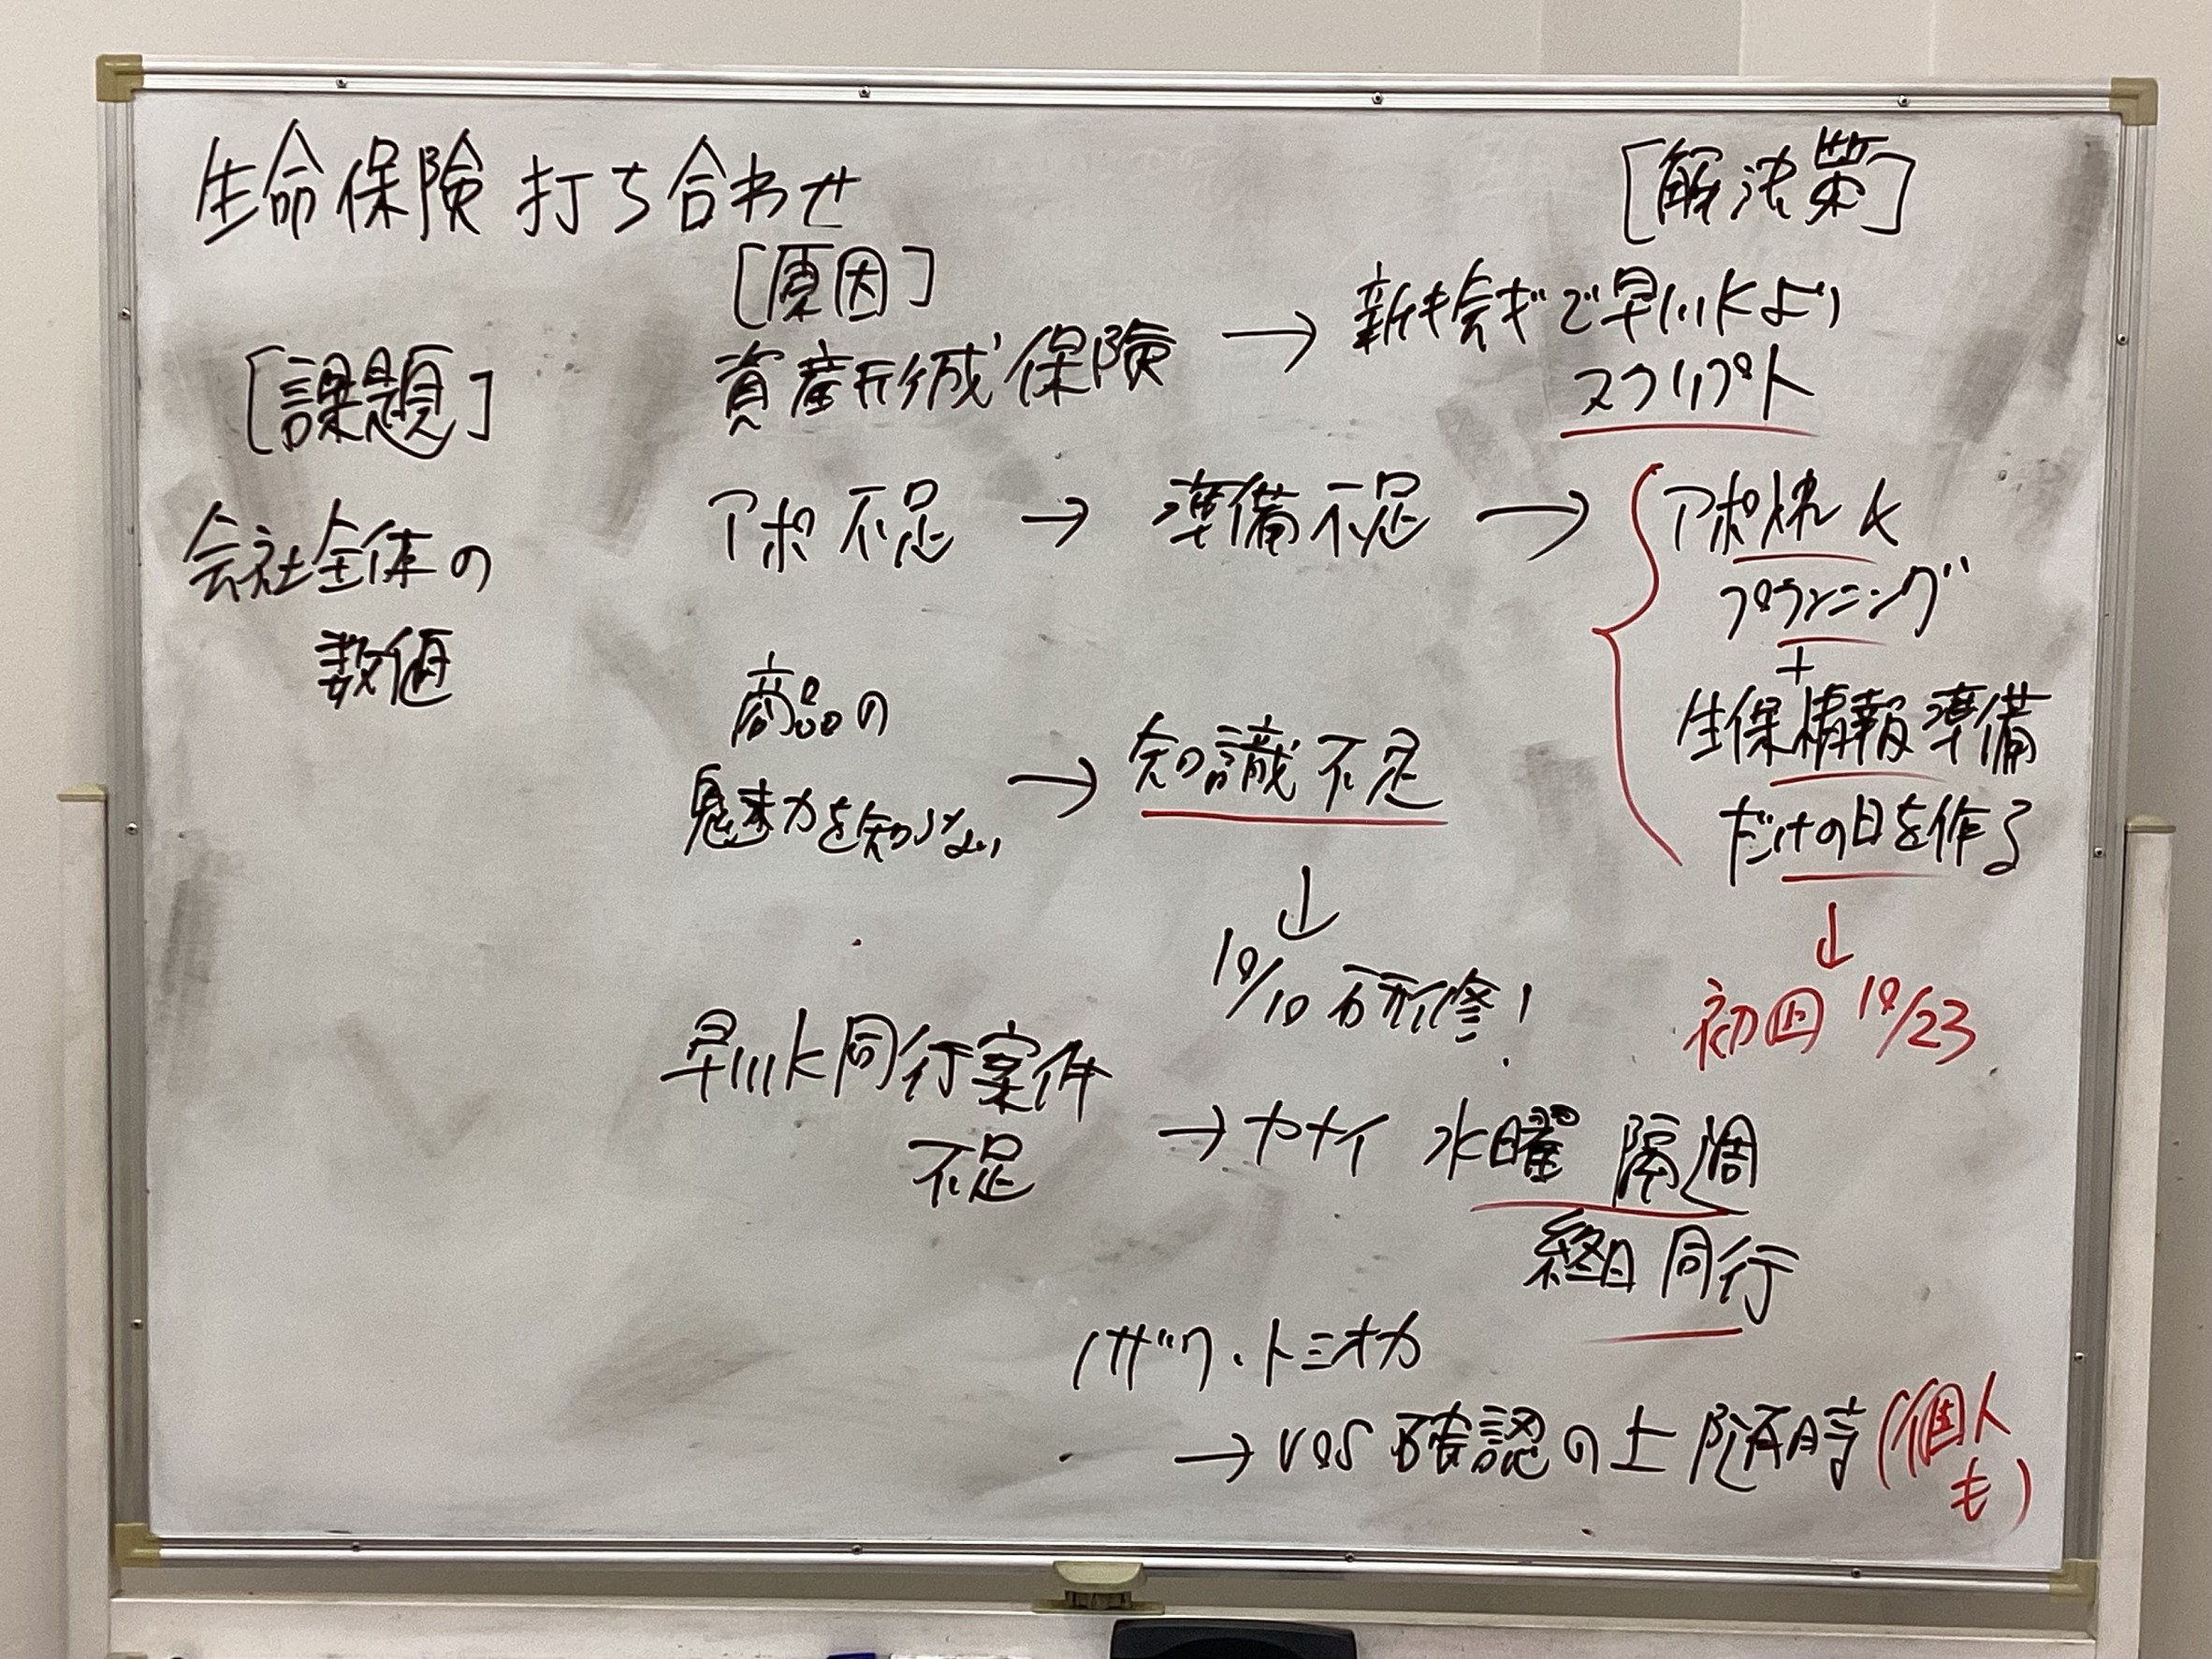 生命保険 打ち合わせ
[課題]
会社全体の
数値
[原因]
資産形成保険 →
アポ不足 → 準備不足 →
商品の
魅力を知らない → 知識不足
↓
10/10 研修!
早川K同行案件
不足
[解決策]
で早川Kより
スクリプト
アポ入れ
プランニング
+
生保情報準備
だけの日を作る
↓
初回 10/23
→ ヤナイ 水曜 隔週
終日 同行
イザワ・トミオカ
→ 確認の上 随時 (個人
も)